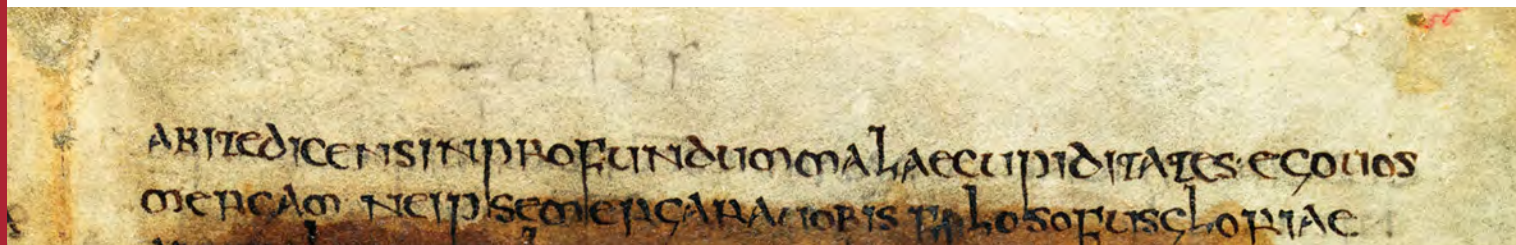 ABITEDICENSINPROFUNDUMMALAECUPIDITATES·EGOUOS
MERGAM NEIPSEMERGARAUOBIS FILOSOFUSGLORIAE